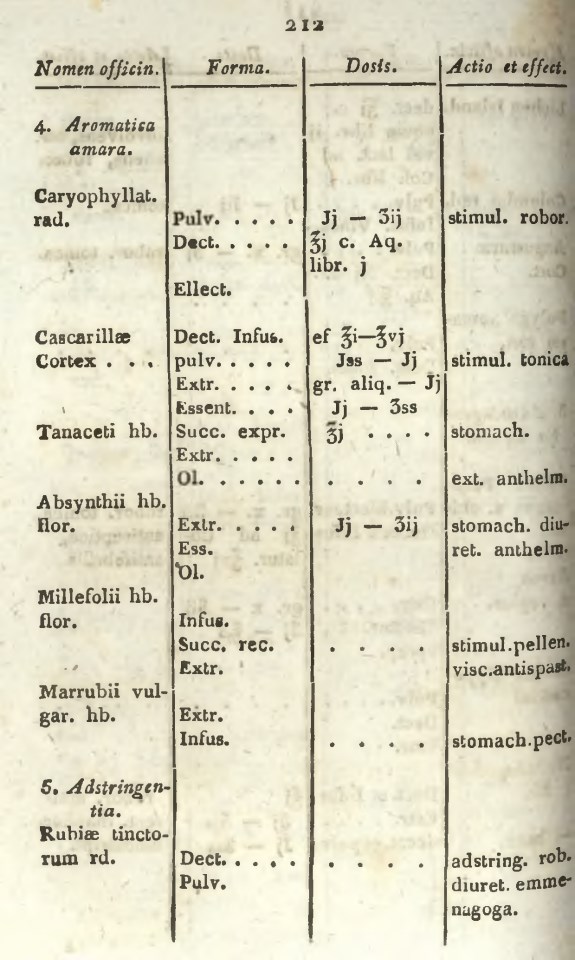 212
Nomen officin. Forma. Dosis. Actio et effect.
4. Aromatica
amara.
Caryophyllat.
rad. Pulv. . . . . Jj — 3ij stimul. robor.
Dect. . . . . ℥j c. Aq.
libr. j
Ellect.
Cascarillæ Dect. Infus. ef ℥i—℥vj
Cortex . . . pulv. . . . . Jss — Jj stimul. tonica
Extr. . . . . gr. aliq. — Jj
Essent. . . . Jj — 3ss
Tanaceti hb. Succ. expr. ℥j . . . . stomach.
Extr. . . . .
Ol. . . . . . . . . . ext. anthelm.
Absynthii hb.
flor. Extr. . . . . Jj — 3ij stomach. diu-
Ess. ret. anthelm.
Ol.
Millefolii hb.
flor. Infus.
Succ. rec. . . . . stimul.pellen.
Extr. visc.antispast.
Marrubii vul-
gar. hb. Extr.
Infus. . . . . stomach.pect.
5. Adstringen-
tia.
Rubiæ tincto-
rum rd. Dect. . . . . . . . . adstring. rob.
Pulv. diuret. emme-
nagoga.